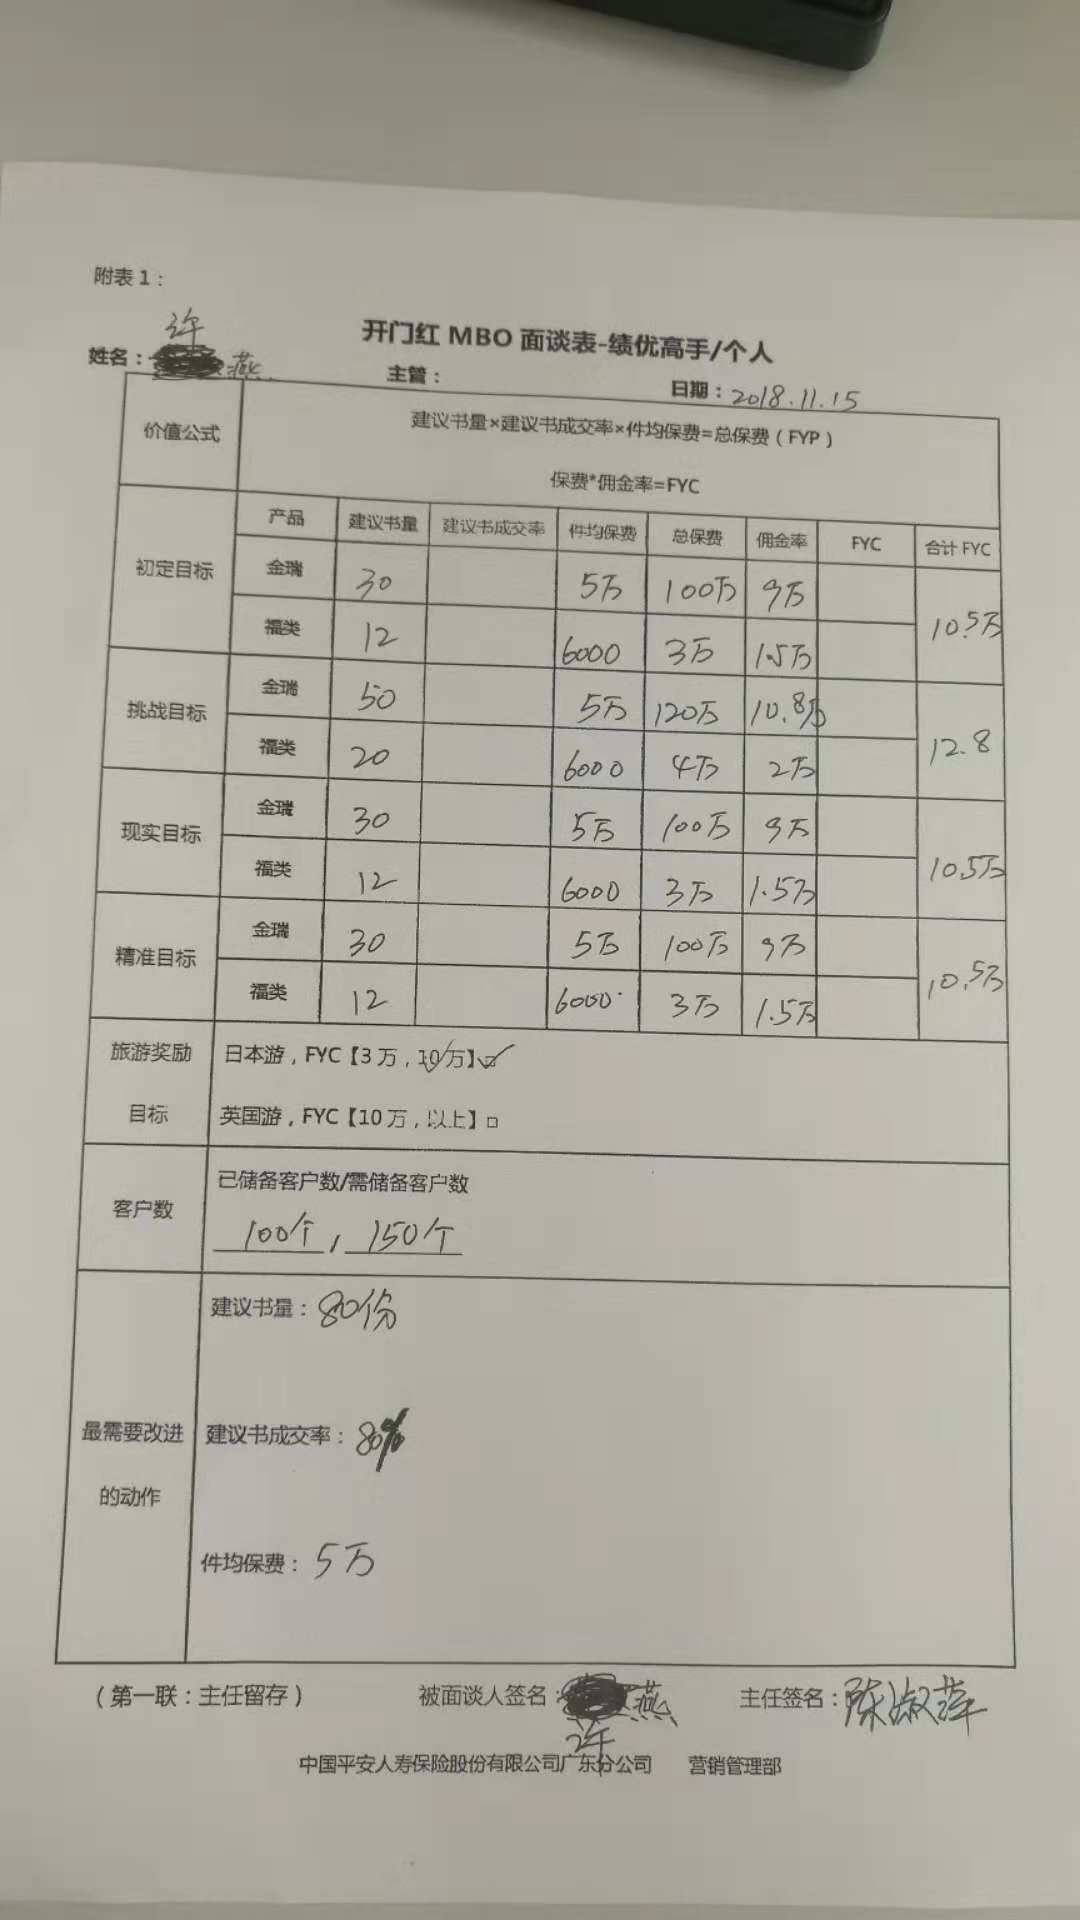 附表 1：
许
开门红 MBO 面谈表-绩优高手/个人
姓名：燕 主管： 日期：2018.11.15
价值公式 建议书量×建议书成交率×件均保费=总保费（FYP）
保费*佣金率=FYC
产品 建议书量 建议书成交率 件均保费 总保费 佣金率 FYC 合计 FYC
初定目标 金瑞 30 5万 100万 9万 10.5万
福类 12 6000 3万 1.5万
挑战目标 金瑞 50 5万 120万 10.8万 12.8
福类 20 6000 4万 2万
现实目标 金瑞 30 5万 100万 9万 10.5万
福类 12 6000 3万 1.5万
精准目标 金瑞 30 5万 100万 9万 10.5万
福类 12 6000 3万 1.5万
旅游奖励 日本游，FYC【3 万，10 万】☑
目标 英国游，FYC【10 万，以上】□
已储备客户数/需储备客户数
客户数 100个，150个
建议书量：80份
最需要改进 建议书成交率：80%
的动作
件均保费：5万
（第一联：主任留存） 被面谈人签名：燕 主任签名：陈淑萍
许
中国平安人寿保险股份有限公司广东分公司 营销管理部